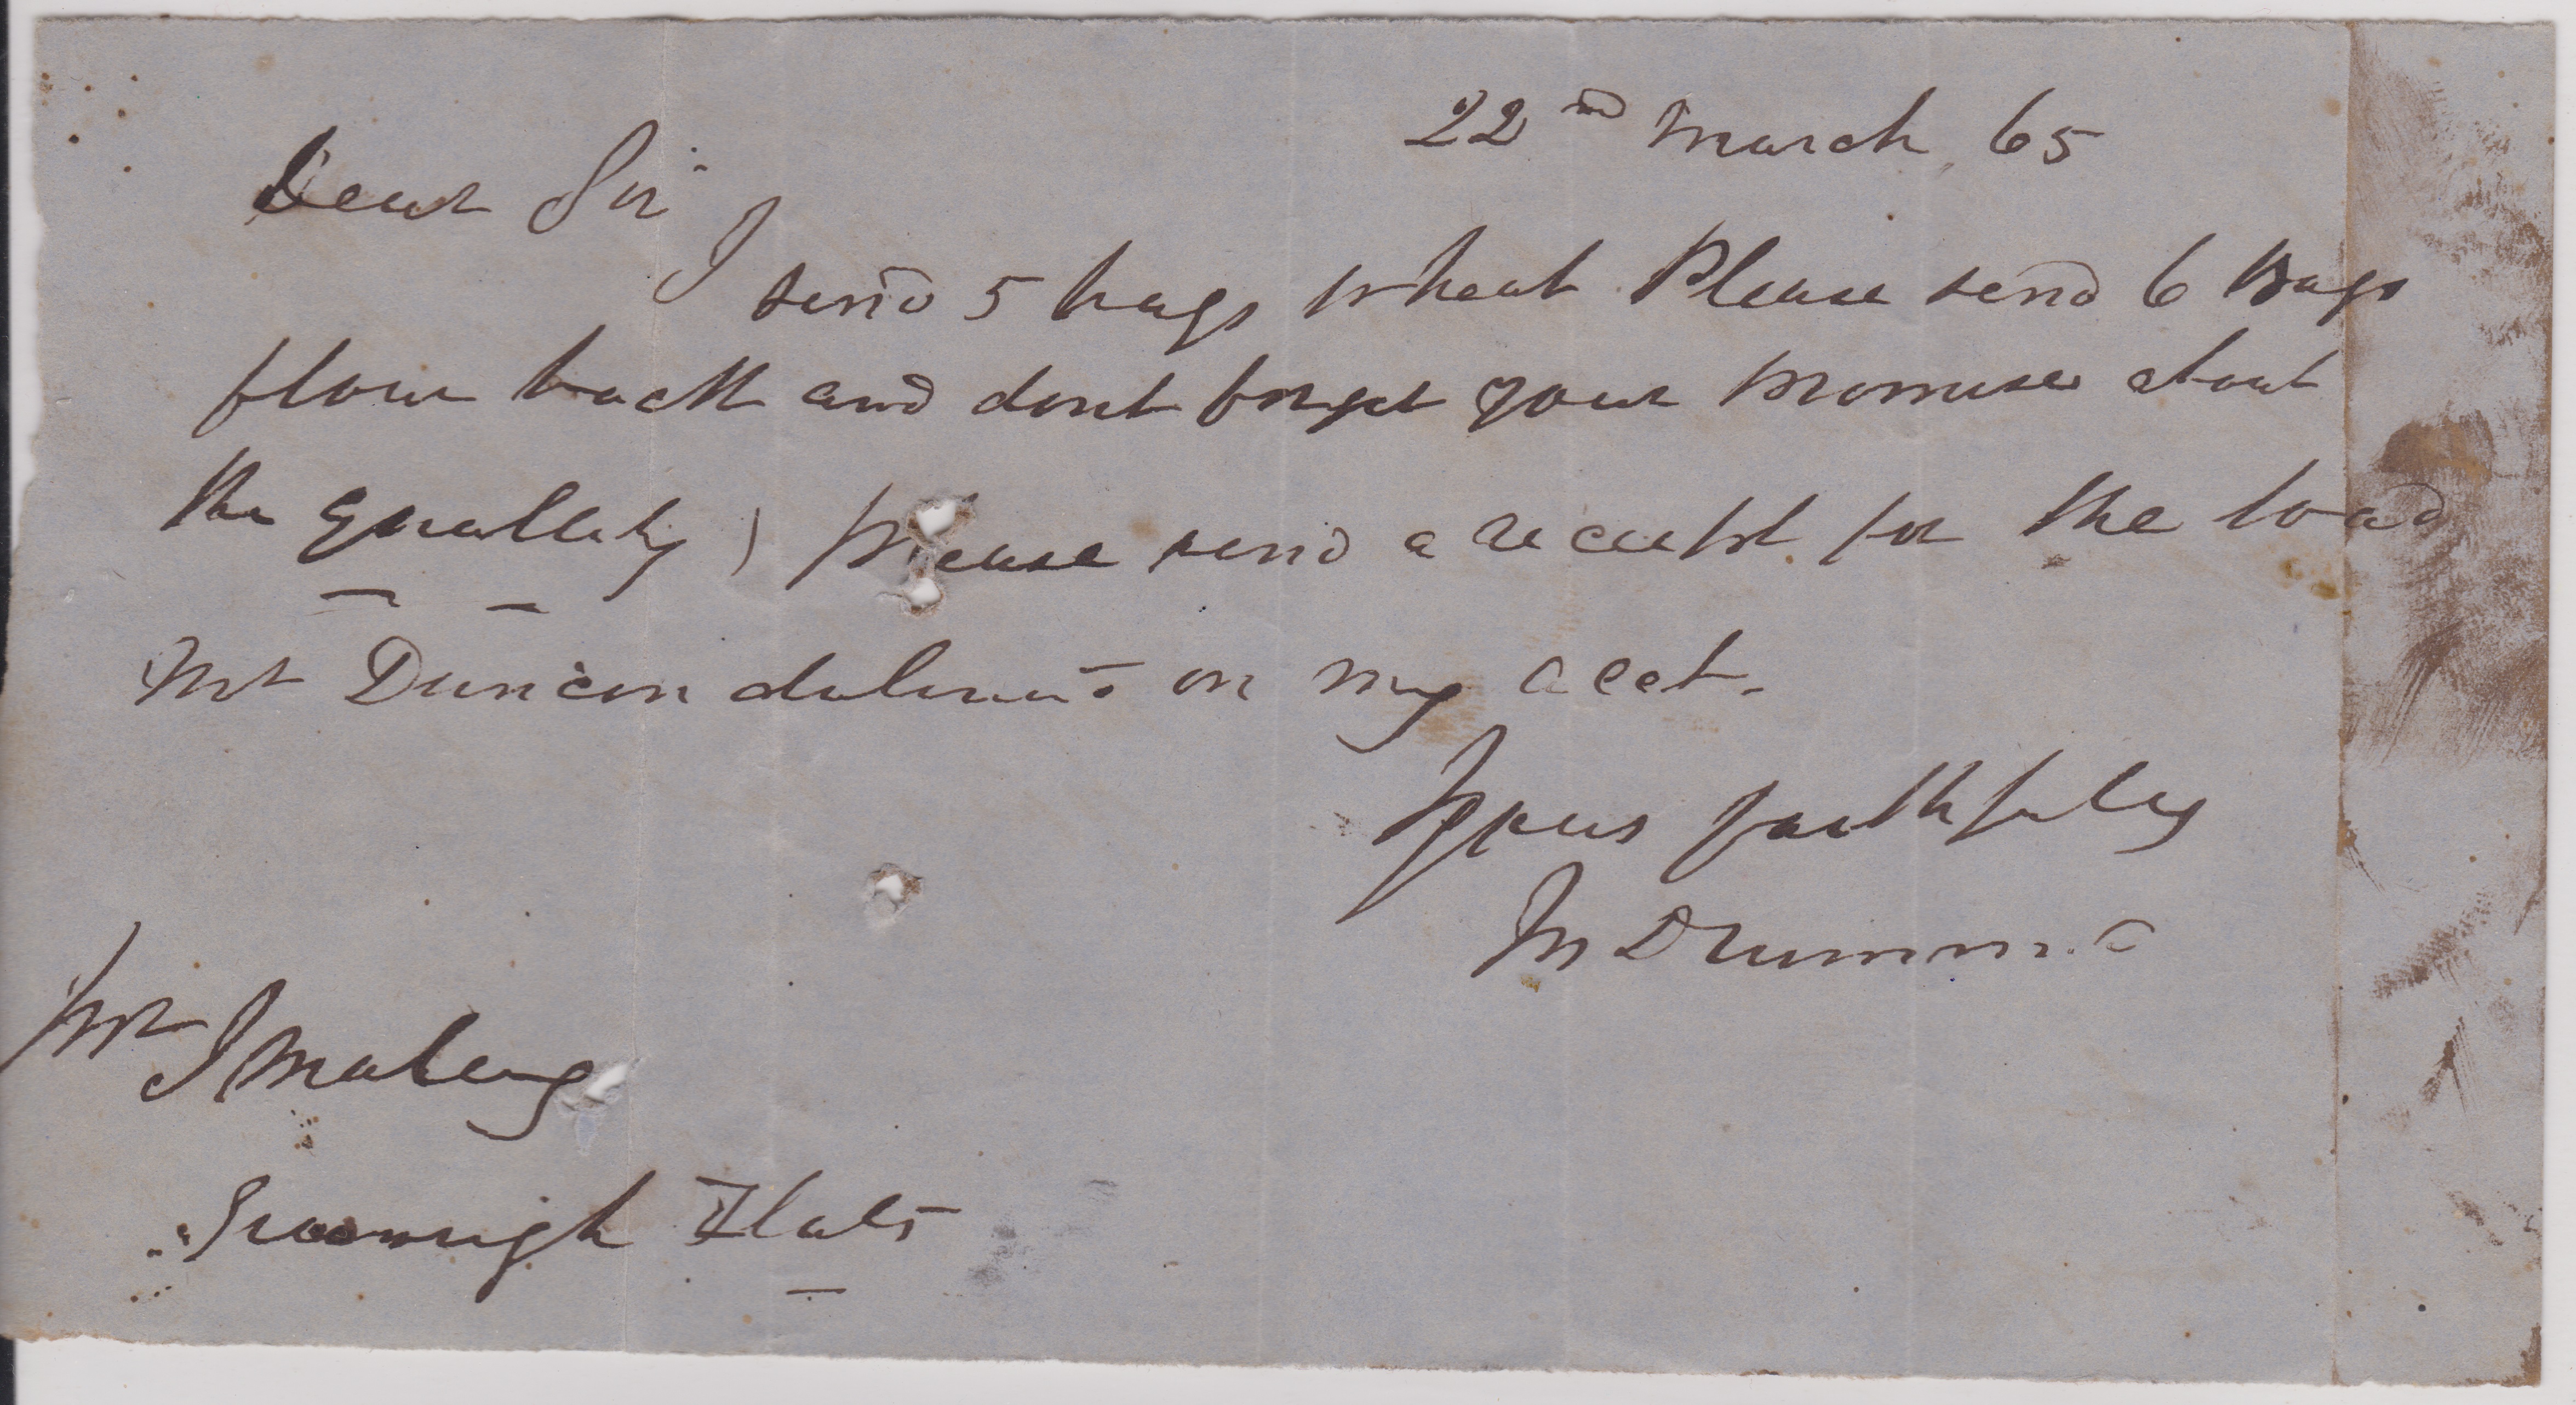 22nd March 65
Dear Sir
I send 5 bags wheat Please send 6 bags
flour back and dont forget your promise about
the quallity) please send a receipt for the load
Mr Duncan delivered on my acct.
Yours faithfully
M Drummond
Mr J Maley
Greenough Flats